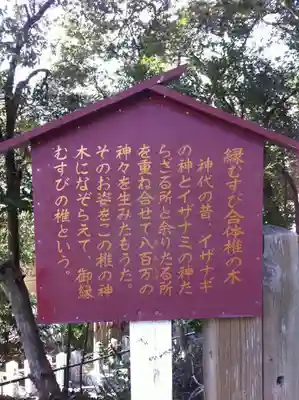 縁むすび合体椎の木
神代の昔、イザナギ
の神とイザナミの神た
らざる所と余りたる所
を重ね合せて八百万の
神々を生みたもうた。
そのお姿をこの椎の神
木になぞらえて、御縁
むすびの椎という。